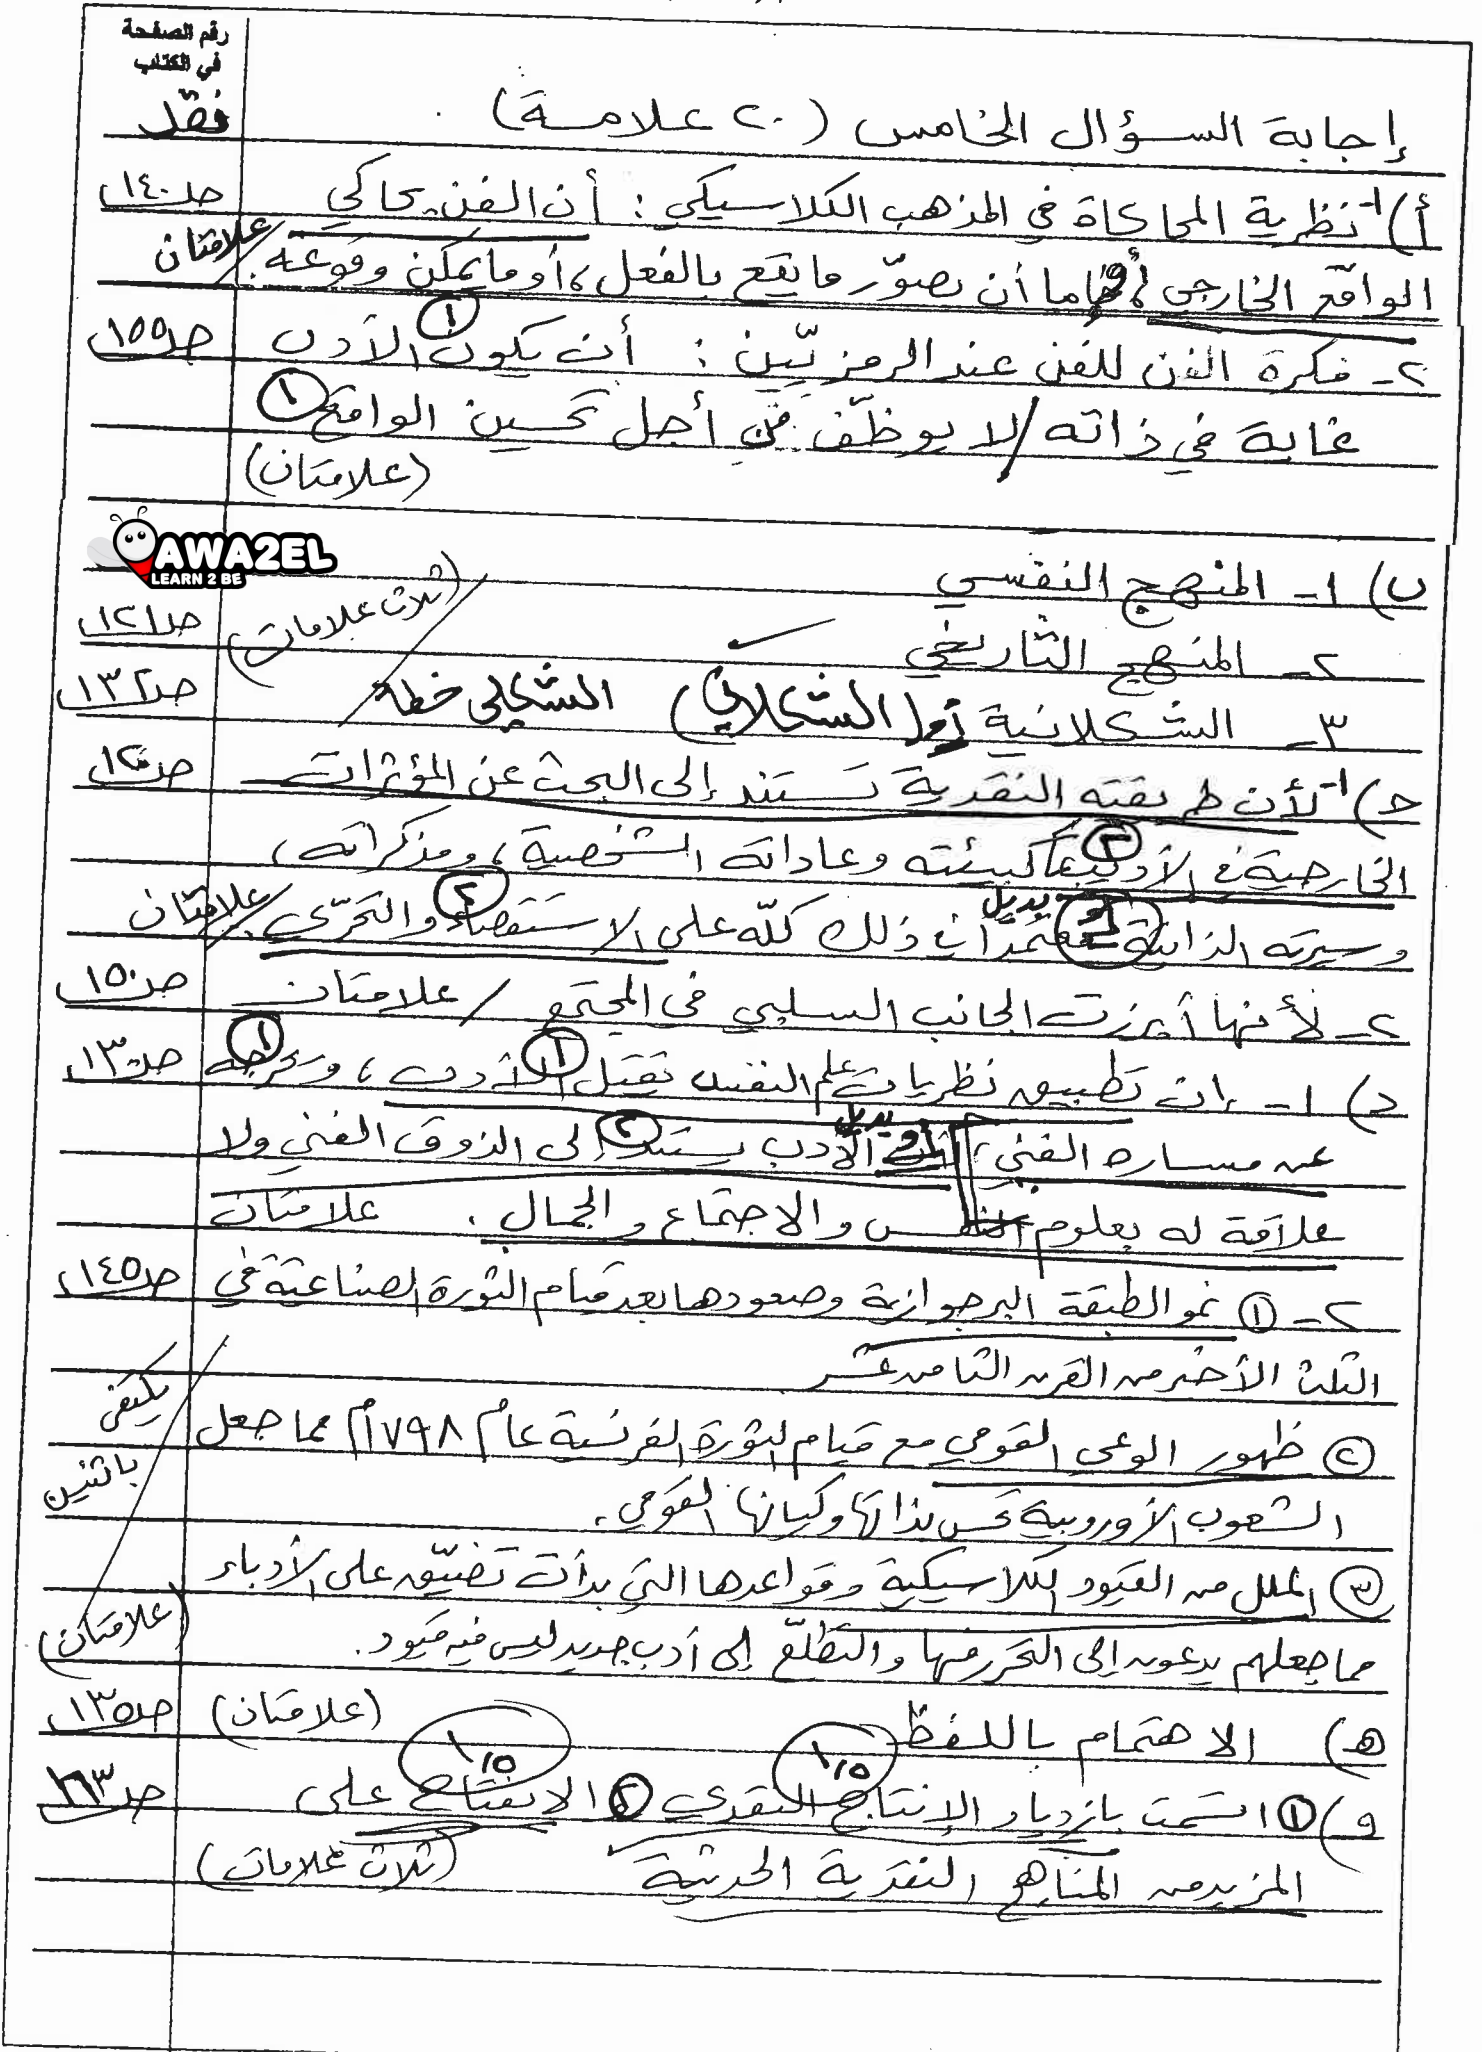 رقم الصفحة
في الكتاب
نقد
إجابة السؤال الخامس (٢٠ علامة)
أ) ١- نظرية المحاكاة في المذهب الكلاسيكي : أن الفن يحاكي صـ١٤٠
الواقع الخارجي ، إما أن يصوّر ما يقع بالفعل ، أو ما يمكن وقوعه . / علامتان
٢- فكرة الفن للفن عند الرمزيّين : أن يكون الأدب ① صـ١٥٥
غاية في ذاته / لا يوظّف من أجل تحسين الواقع ①
(علامتان)
AWA2EL
LEARN 2 BE
ب) ١- المنهج النفسي
٢- المنهج التاريخي (ثلاث علامات) صـ١٢١
٣- الشكلانية أو (الشكلاني) الشكلي خطأ صـ١٣٢
جـ) ١- لأن طريقته النقدية تستند إلى البحث عن المؤثرات صـ١٢٠
الخارجية في الأديب كبيئته وعاداته الشخصية ، ومذكراته ،
وسيرته الذاتية معتمدًا في ذلك كلّه على الاستقصاء والتحرّي . / علامتان
أو بديل
٢- لأنها أبرزت الجانب السلبي في المجتمع / علامتان صـ١٥٠
د) ١- إن تطبيق نظريات علم النفس تقتل الأدب ، وتخرجه صـ١٣٠
عن مساره الفني ، الأدب يستند إلى الذوق الفني ولا
أو بديل
علاقة له بعلوم النفس والاجتماع والجمال . علامتان
٢- ① نمو الطبقة البرجوازية وصعودها بعد قيام الثورة الصناعية في صـ١٤٥
الثلث الأخير من القرن الثامن عشر
② ظهور الوعي القومي مع قيام الثورة الفرنسية عام ١٧٩٨م مما جعل يكتفى
الشعوب الأوروبية تحس بذاتها وكيانها القومي . باثنين
③ الملل من القيود الكلاسيكية وقواعدها التي بدأت تضيّق على الأدباء
مما جعلهم يدعون إلى التحرر منها والتطلّع إلى أدب جديد ليس فيه قيود . (علامتان)
هـ) الاهتمام باللفظ (علامتان) صـ١٣٥
و) ① اتسمت بازدياد الإنتاج النقدي ② الانفتاح على صـ١٦٣
المزيد من المناهج النقدية الحديثة (ثلاث علامات)